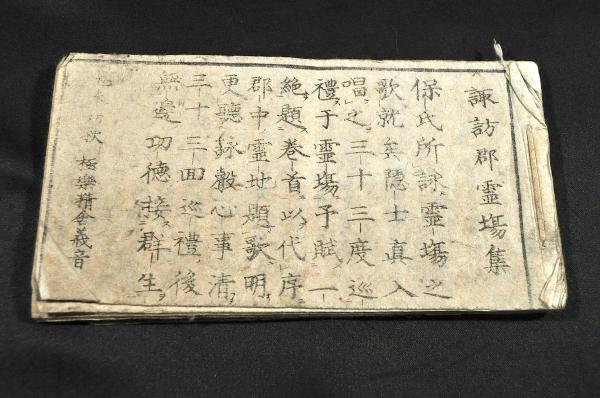 諏訪郡霊場集
保氏所詠霊場之
歌就矣隠士真入
唱之三十三度巡
禮于霊場予賦一
絶題巻首以代序
郡中霊地題歌明
更聴詠聲心事清
三十三回巡禮後
無邊功徳接群生
極樂精舎義音